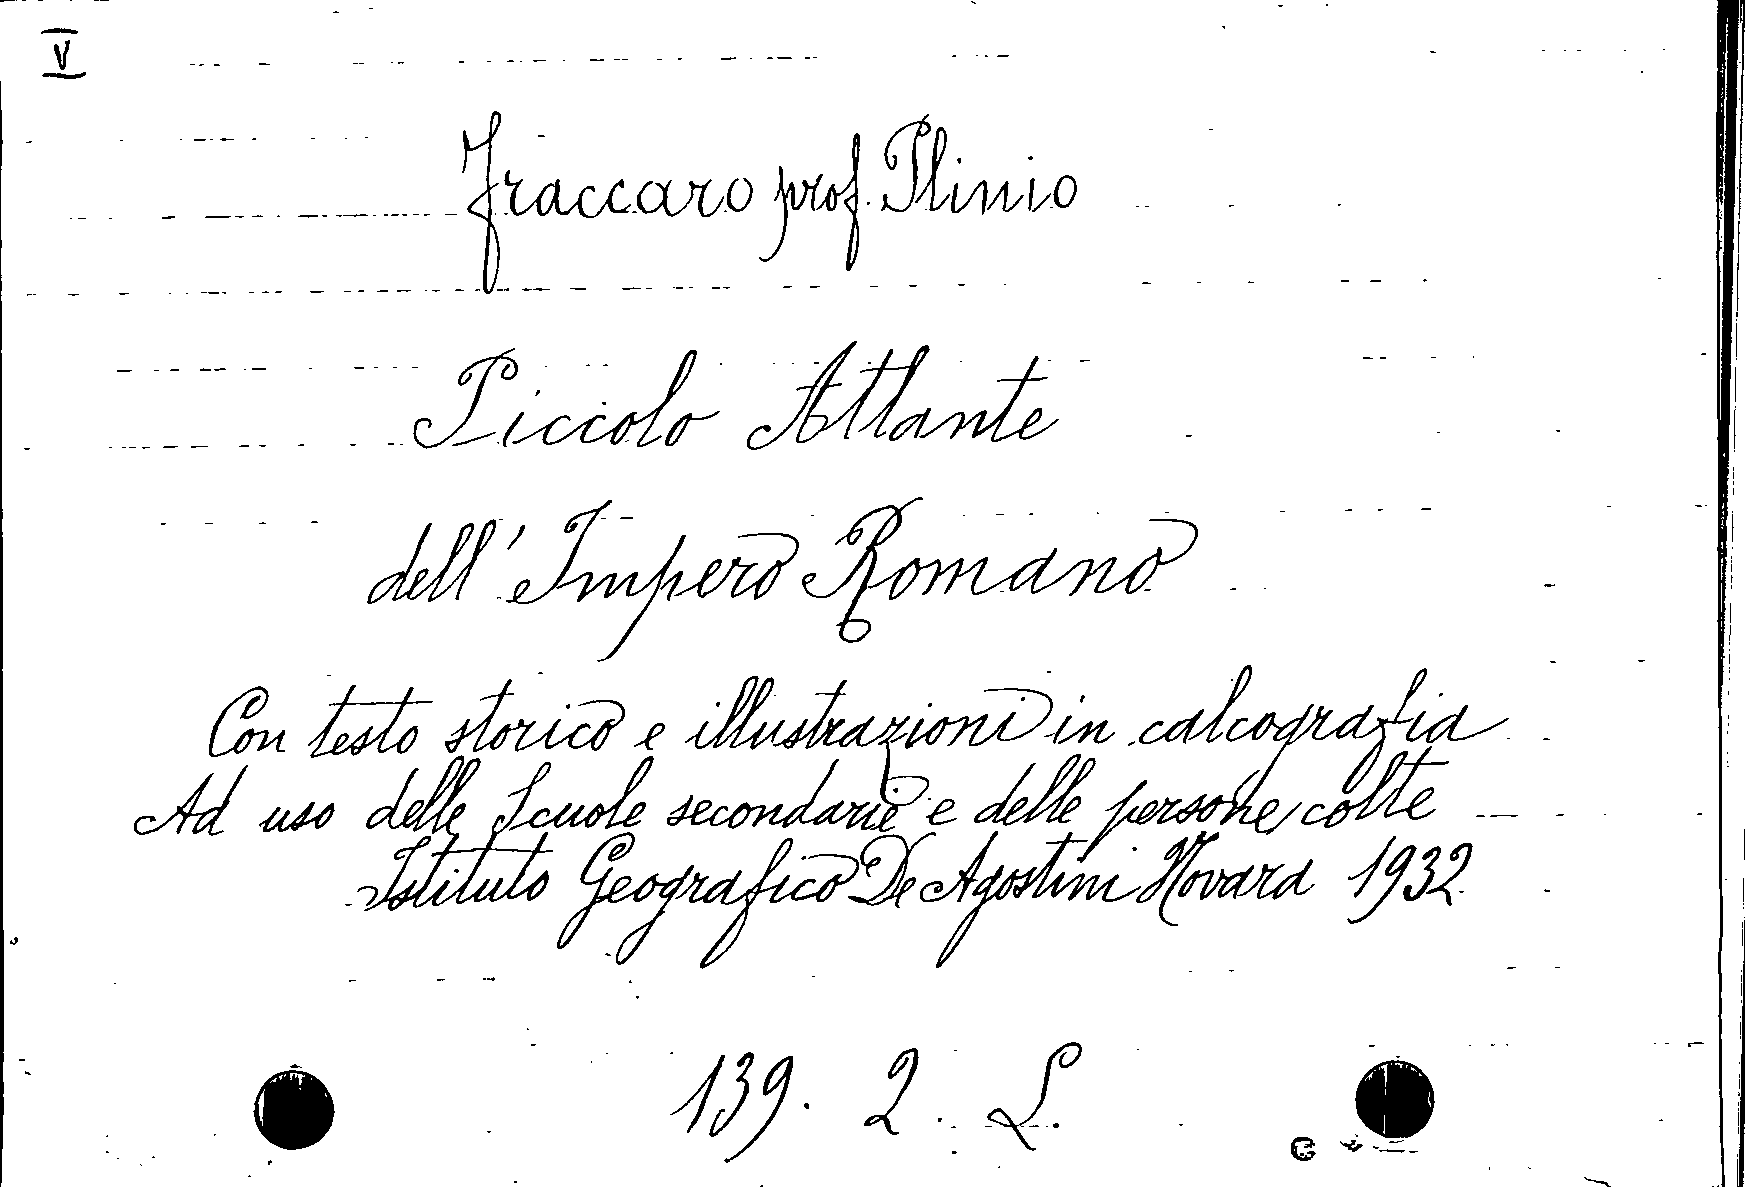 V
Fraccaro prof. Plinio
Piccolo Atlante
dell'Impero Romano
Con testo storico e illustrazioni in calcografia
Ad uso delle Scuole secondarie e delle persone colte
Istituto Geografico De Agostini Novara 1932
139. 2. L.